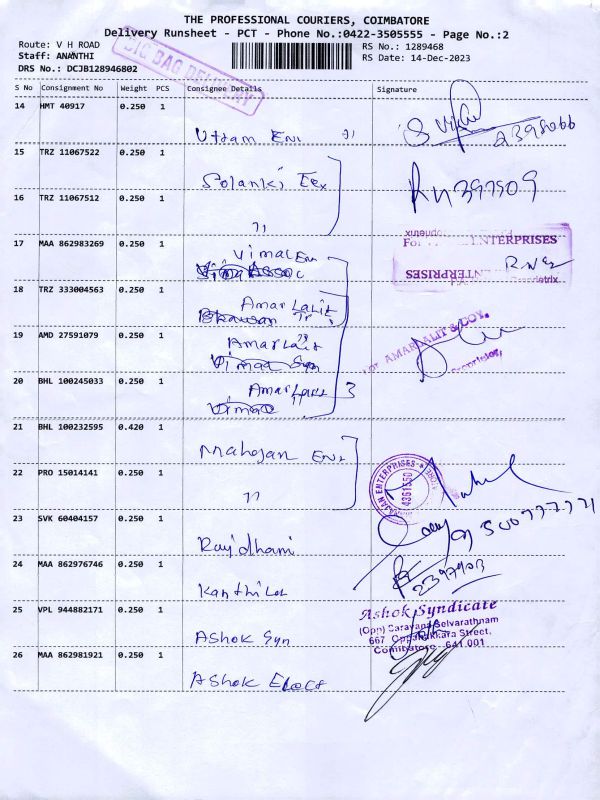 THE PROFESSIONAL COURIERS, COIMBATORE
Delivery Runsheet - PCT - Phone No.:0422-3505555 - Page No.:2
Route: V H ROAD
RS No.: 1289468
Staff: ANANTHI
RS Date: 14-Dec-2023
DRS No.: DCJB128946802
BIG BAG DELIVERY
S No Consignment No Weight PCS Consignee Details Signature
14 HMT 40917 0.250 1
Uttam Ent
2398066
15 TRZ 11067522 0.250 1
Solanki Eex
16 TRZ 11067512 0.250 1
17 MAA 862983269 0.250 1
Vimal Ent
For ENTERPRISES
ENTERPRISES
18 TRZ 333004563 0.250 1
Amar Lalit
19 AMD 27591079 0.250 1
Amar Lalit
AMARLALIT & COY.
20 BHL 100245033 0.250 1
3
21 BHL 100232595 0.420 1
Mahajan Ent
22 PRO 15014141 0.250 1
ENTERPRISES
4361550
23 SVK 60404157 0.250 1
Rajdhani
24 MAA 862976746 0.250 1
Kanthilal
2397903
25 VPL 944882171 0.250 1
Ashok Syn
Ashok Syndicate
(Opp) Saravana Selvarathnam
667, Oppanakkara Street,
Coimbatore - 641 001
26 MAA 862981921 0.250 1
Ashok Elect